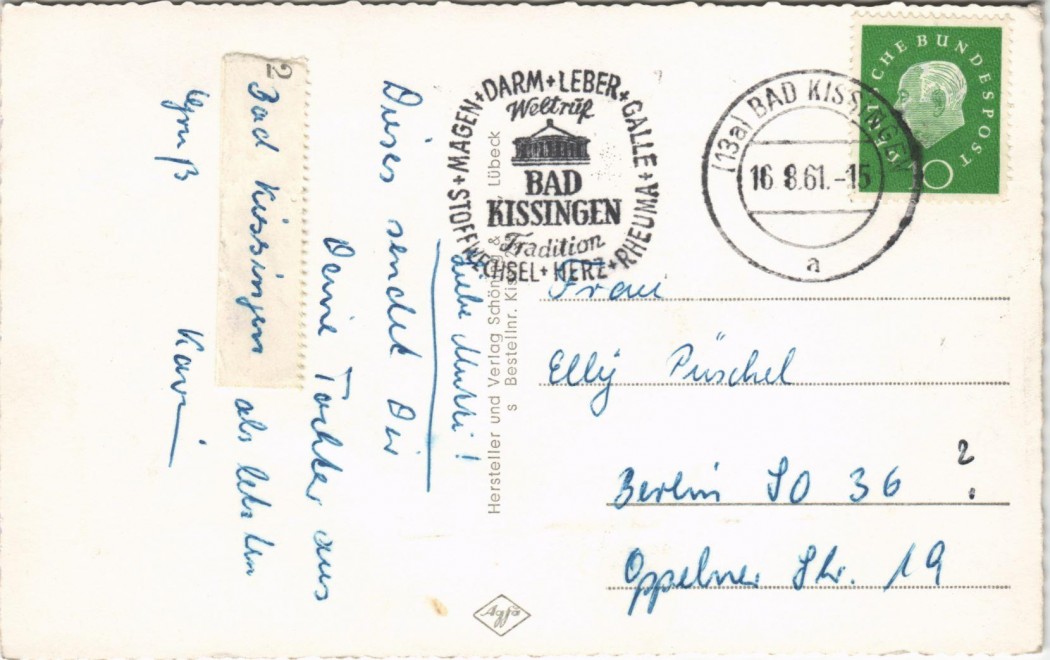 Liebe Mutti!
Dieses sendet Dir
Deine Tochter aus
Bad Kissingen als letzten
Gruß Karin
2
Hersteller und Verlag Schöning & Lübeck
s Bestellnr. Kis
STOFFWECHSEL + MAGEN + DARM + LEBER + GALLE + RHEUMA + HERZ +
Weltruf
BAD
KISSINGEN
Tradition
(13a) BAD KISSINGEN
16.8.61.-15
a
DEUTSCHE BUNDESPOST
10
Frau
Elly Püschel
Berlin SO 36 ?
Oppelner Str. 19
Agfa